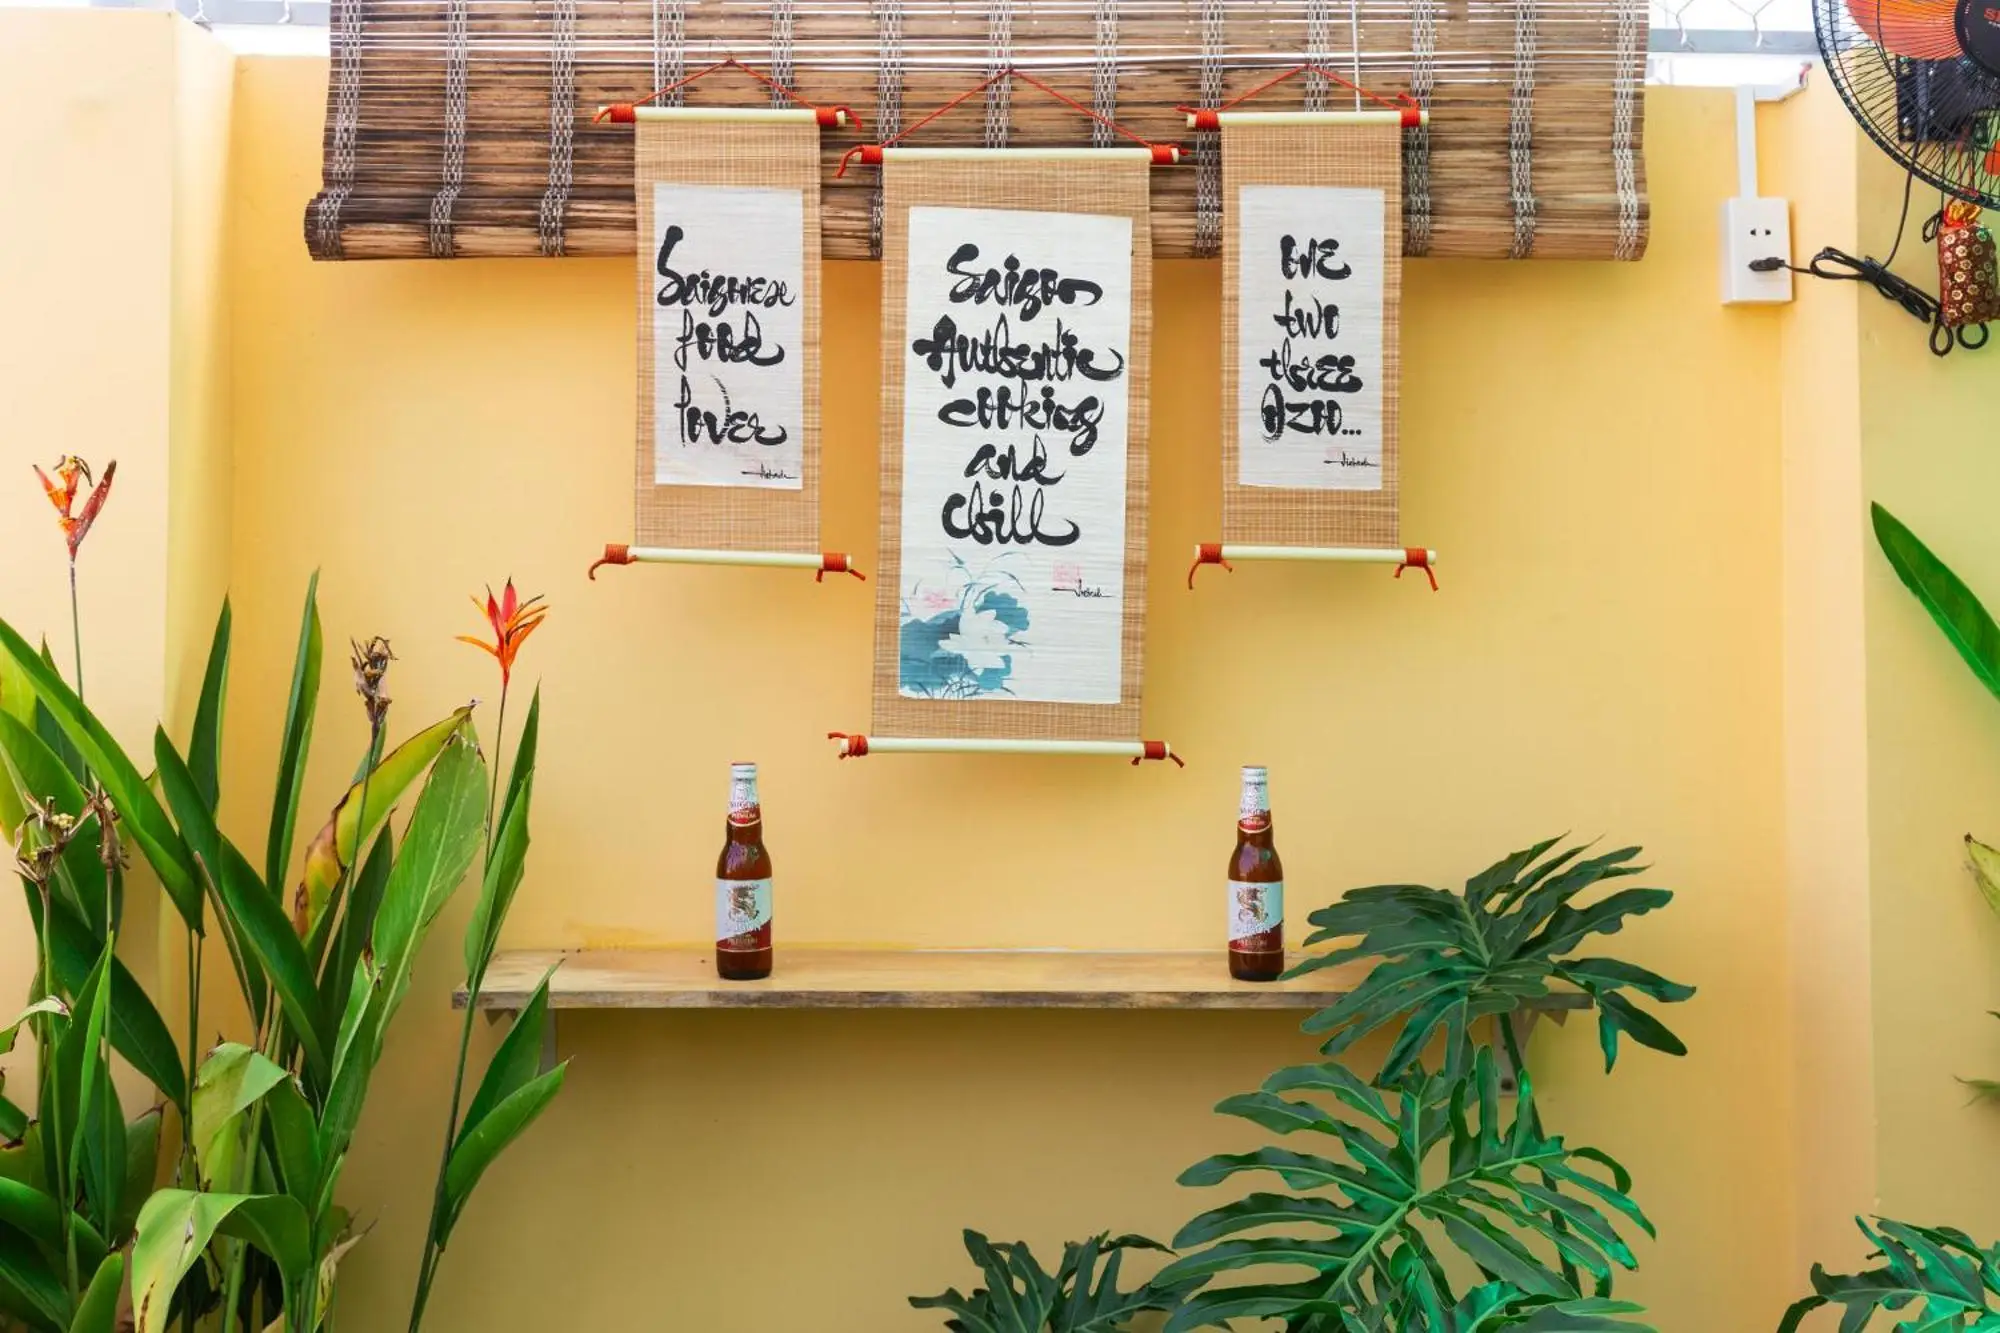 Saigonese
food
lover
Saigon
Authentic
cooking
and
Chill
one
two
three
Dzoo...
SAIGON
PREMIUM
SAIGON
PREMIUM